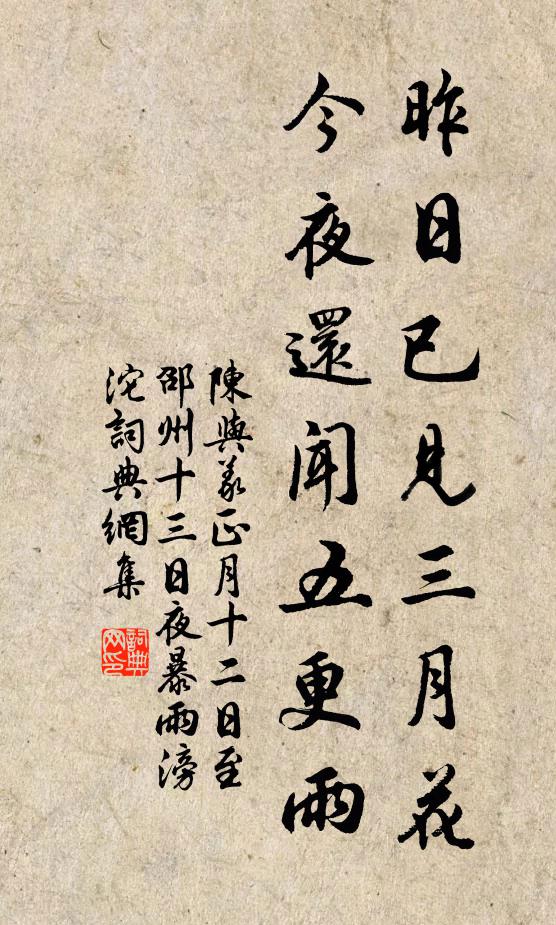 昨日已見三月花
今夜還聞五更雨
陳與義正月十二日至
邵州十三日夜暴雨滂
沱詞典網集
詞典网印